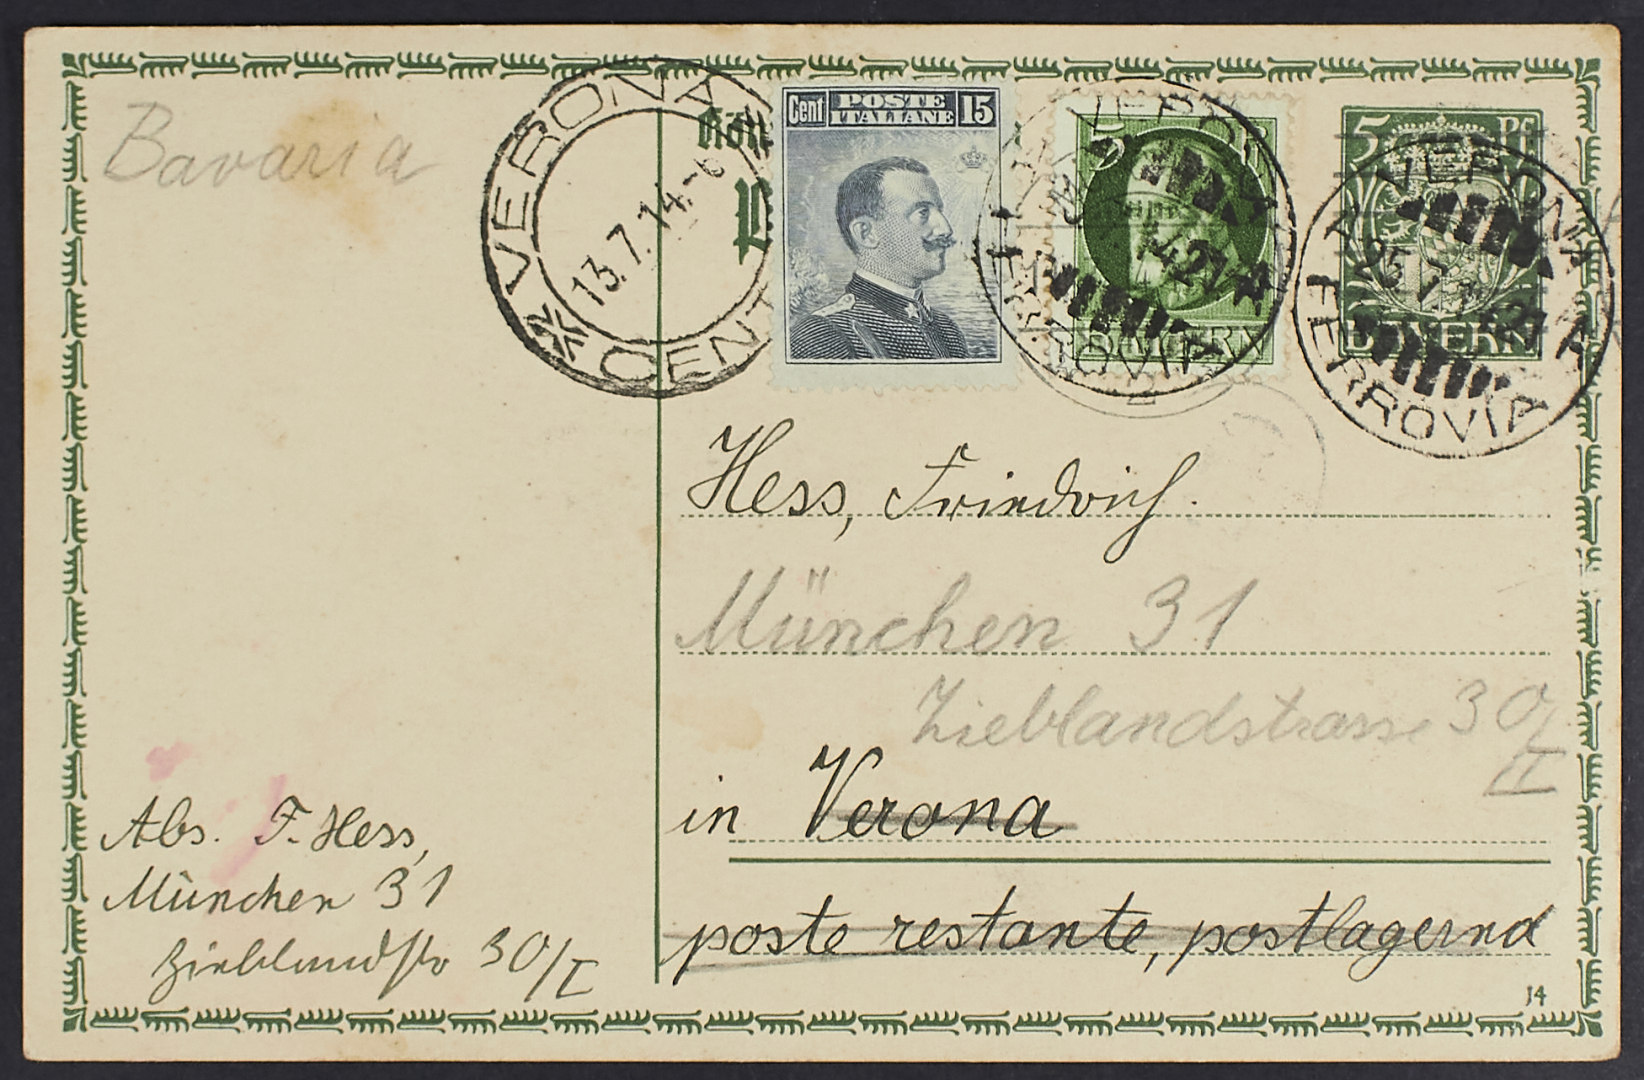 Bavaria
VERONA
13.7.14.-6
CENT
Cent POSTE ITALIANE 15
5
BAYERN
VERONA
FERROVIA
5 Pf
BAYERN
VERONA
25.7.14 21
FERROVIA
Hess, Friedrich.
München 31
Zieblandstrasse 30/
II
in Verona
poste restante, postlagernd
Abs. F. Hess,
München 31
Zieblandstr 30/I
14